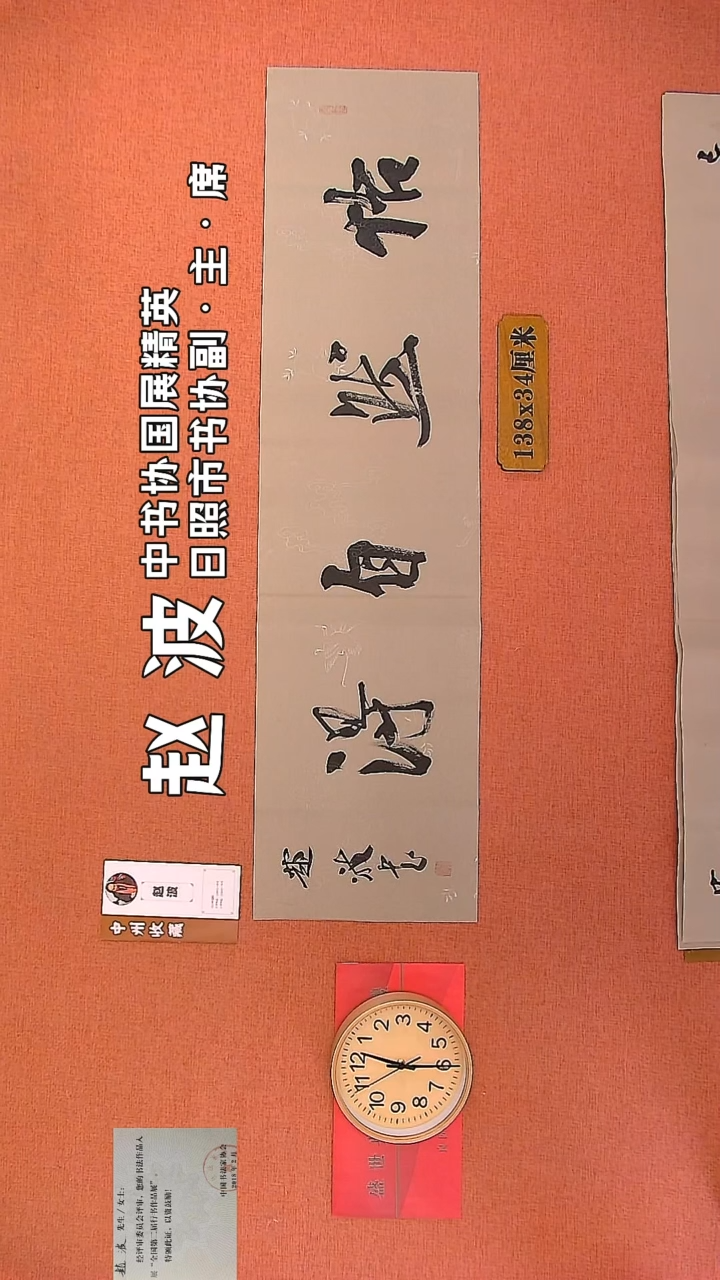 赵波
中书协国展精英
日照市书协副·主·席
恬然自得
赵波书
138x34厘米
赵波
中州收藏
赵波 先生/女士:
经评审委员会评审，您的书法作品入
展“全国第二届行书作品展”。
特颁此证，以资鼓励！
中国书法家协会
盛世
12
1
2
3
4
5
6
7
8
9
10
11